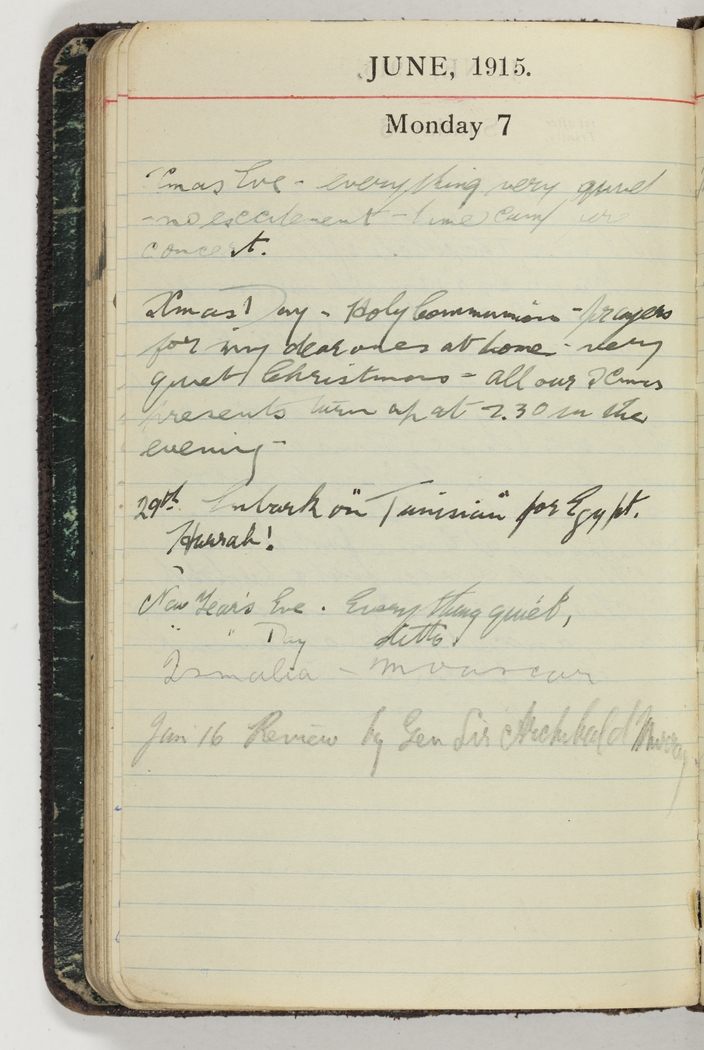 JUNE, 1915.
Monday 7
Xmas Eve - everything very quiet
- no excitement - time camp fire
concert.
Xmas Day - Holy Communion - prayers
for my dear ones at home - very
quiet Christmas - all our Xmas
presents turn up at 7.30 in the
evening -
29th. Embark on "Tunisian" for Egypt.
Hurrah!
New Year's Eve. Everything quiet,
" " Day ditto.
Ismalia - Moascar
Jan 16 Review by Gen Sir Archibald Murray